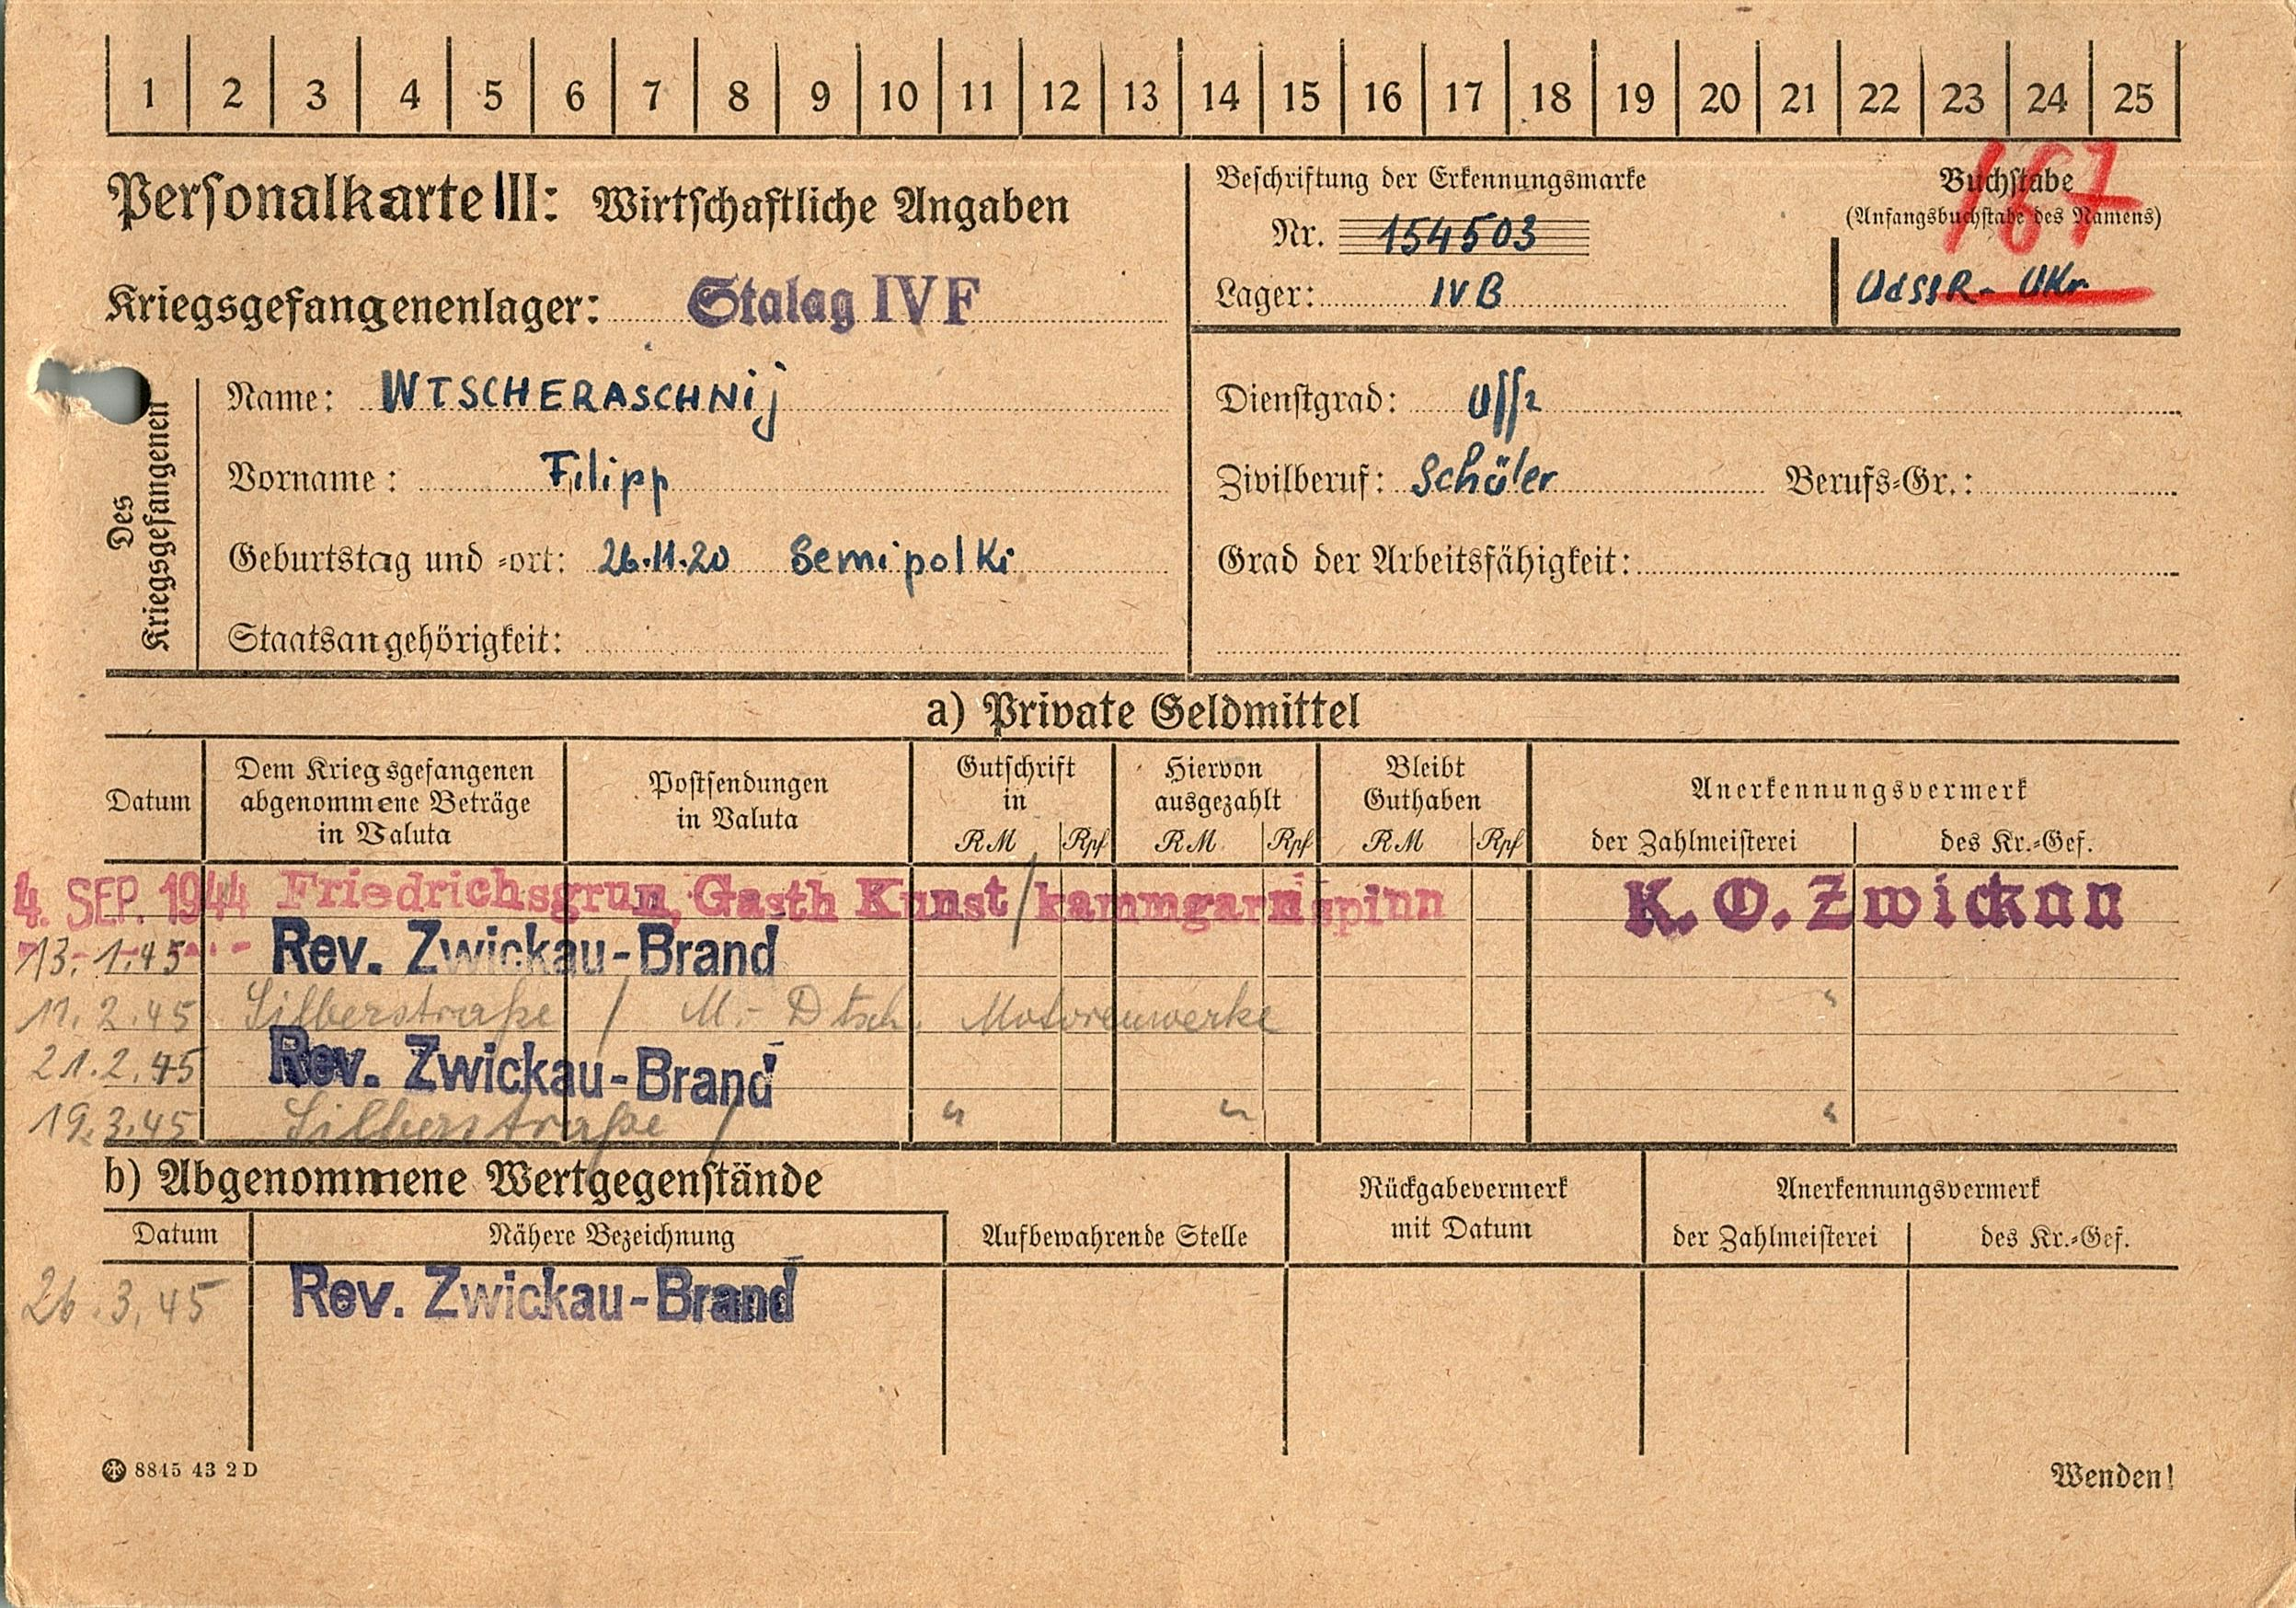 1 2 3 4 5 6 7 8 9 10 11 12 13 14 15 16 17 18 19 20 21 22 23 24 25
Personalkarte III: Wirtschaftliche Angaben
Kriegsgefangenenlager: Stalag IV F
Beschriftung der Erkennungsmarke
Nr. 154503
Lager: IV B
Buchstabe
(Anfangsbuchstabe des Namens)
167
UdSSR - UKr
Des Kriegsgefangenen
Name: WTSCHERASCHNij
Vorname: Filipp
Geburtstag und =ort: 26.11.20 Semipolki
Staatsangehörigkeit:
Dienstgrad: Uffz
Zivilberuf: Schüler Berufs=Gr.:
Grad der Arbeitsfähigkeit:
a) Private Geldmittel
Datum
Dem Kriegsgefangenen abgenommene Beträge in Valuta
Postsendungen in Valuta
Gutschrift in RM Rpf
Hiervon ausgezahlt RM Rpf
Bleibt Guthaben RM Rpf
Anerkennungsvermerk
der Zahlmeisterei des Kr.=Gef.
4. SEP. 1944 Friedrichsgrun, Gasth Kunst / kammgarnspinn K. O. Zwickau
13.1.45 Rev. Zwickau-Brand
11.2.45 Silberstraße / M.- Dtsch. Motorenwerke "
21.2.45 Rev. Zwickau-Brand
19.3.45 Silberstraße / " " "
b) Abgenommene Wertgegenstände
Datum Nähere Bezeichnung Aufbewahrende Stelle
Rückgabevermerk mit Datum
Anerkennungsvermerk
der Zahlmeisterei des Kr.=Gef.
26.3.45 Rev. Zwickau-Brand
8845 43 2 D
Wenden!